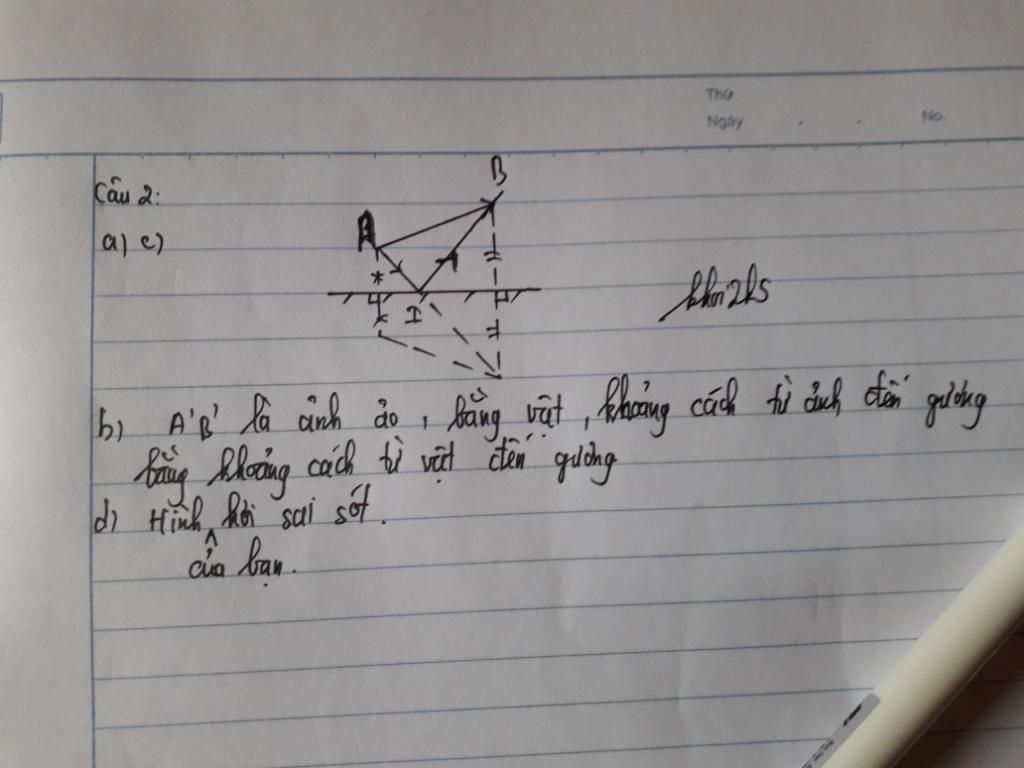 Thứ
Ngày . . No.
Câu 2:
B
a) c)
A
I
khoi2k5
b) A'B' là ảnh ảo, bằng vật, khoảng cách từ ảnh đến gương
bằng khoảng cách từ vật đến gương
d) Hình hơi sai sót.
của bạn.